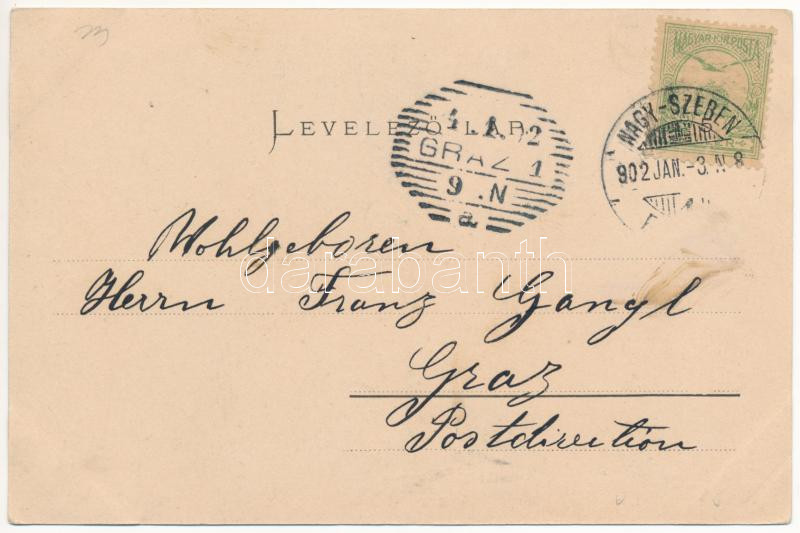 MAGYAR KIR. POSTA
NAGY-SZEBEN
902 JAN.-3. N 8
LEVELEZŐ-LAP
4. 1. 02
GRAZ 1
9 .N
a
Wohlgeboren
darabanth
Herrn Franz Gangl
Graz
Postdirection